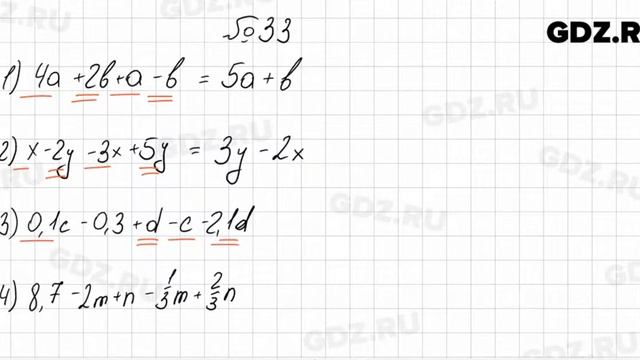 №33
GDZ.RU
1) 4a + 2b + a - b = 5a + b
2) x - 2y - 3x + 5y = 3y - 2x
3) 0,1c - 0,3 + d - c - 2,1d
4) 8,7 - 2m + n - 1/3 m + 2/3 n